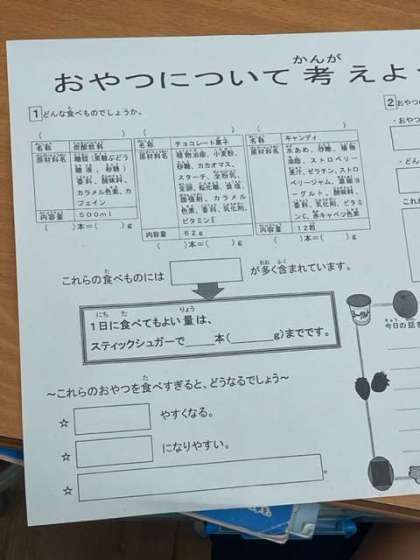 おやつについて考えよ
1 どんな食べものでしょうか。
( )
名称 炭酸飲料
原材料名 糖類(果糖ぶどう
糖液、砂糖)、
香料、酸味料、
カラメル色素、カ
フェイン
内容量 500ml
( )本=( )g
( )
名称 チョコレート菓子
原材料名 植物油脂、小麦粉、
砂糖、カカオマス、
スターチ、全粉乳、
膨張剤、カラメル
色素、香料、乳化剤、
ビタミンE
内容量 62g
( )本=( )g
( )
名称 キャンディ
原材料名 水あめ、砂糖、植物
油脂、ストロベリー
果汁、ゼラチン、ストロ
ベリージャム、
ヨーグルト、酸味料、
香料、乳化剤、ビタミ
ンC、赤キャベツ色素
内容量 12粒
( )本=( )g
これらの食べものには が多く含まれています。
1日に食べてもよい量は、
スティックシュガーで 本( g)までです。
～これらのおやつを食べすぎると、どうなるでしょう～
☆ やすくなる。
☆ になりやすい。
☆ 。
2 おやつ
・おやつ
・
今日の話を